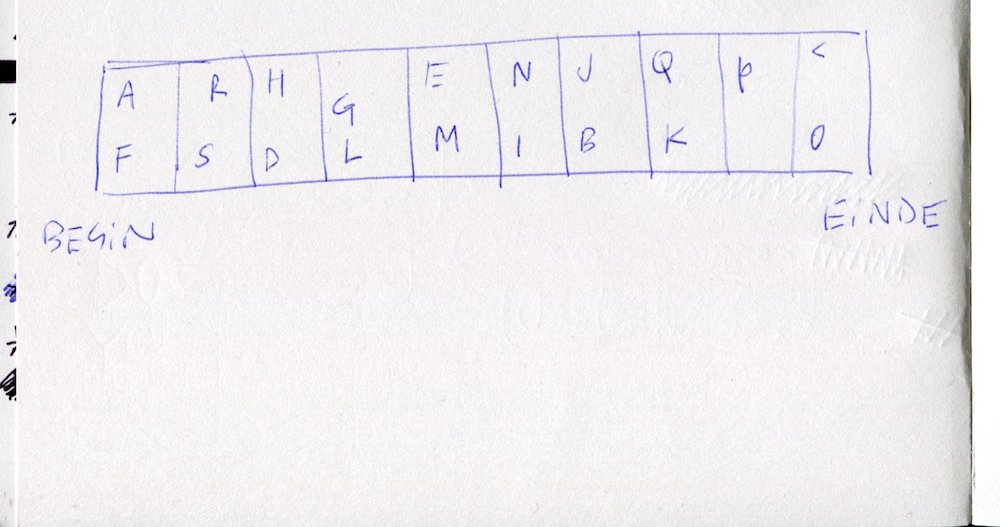 A R H G E N J Q P <
F S D L M I B K O
BEGIN EINDE